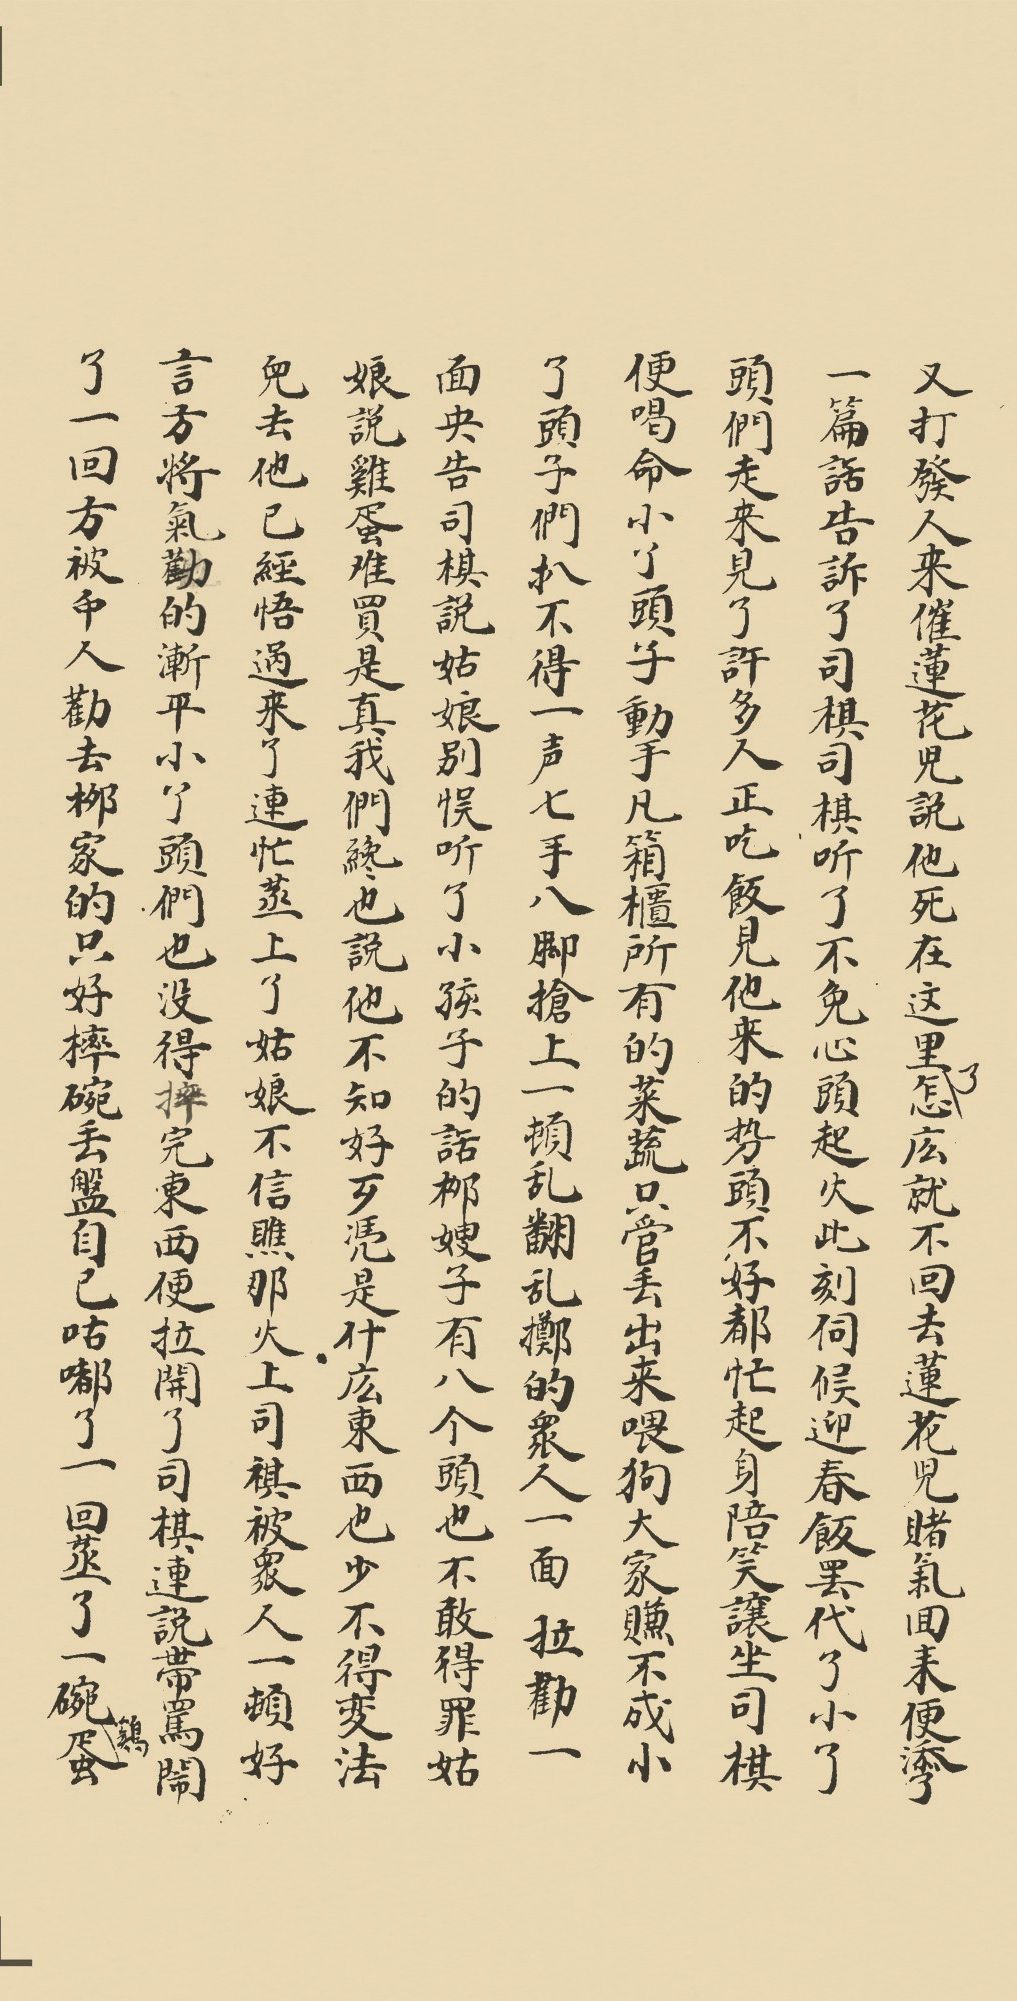 又打發人来催蓮花児說他死在这里了怎庅就不回去蓮花児賭氣囬来便添了
一篇話告訴了司棋司棋听了不免心頭起火此刻伺候迎春飯罢代了小丫
頭們走来見了許多人正吃飯見他来的势頭不好都忙起身陪笑讓坐司棋
便喝命小丫頭子動手凡箱櫃所有的菜蔬只管丢出来喂狗大家賺不成小
丫頭子們扒不得一声七手八脚搶上一頓乱翻乱擲的衆人一面拉勸一
面央告司棋說姑娘别悮听了小孩子的話柳嫂子有八个頭也不敢得罪姑
娘說雞蛋难買是真我們纔也說他不知好歹凴是什庅東西也少不得变法
兒去他已經悟過来了連忙蒸上了姑娘不信瞧那火上司棋被衆人一頓好
言方將氣勸的漸平小丫頭們也没得摔完東西便拉開了司棋連說帶罵鬧
了一回方被衆人勸去柳家的只好摔碗丢盤自己咕嘟了一回蒸了一碗鷄蛋